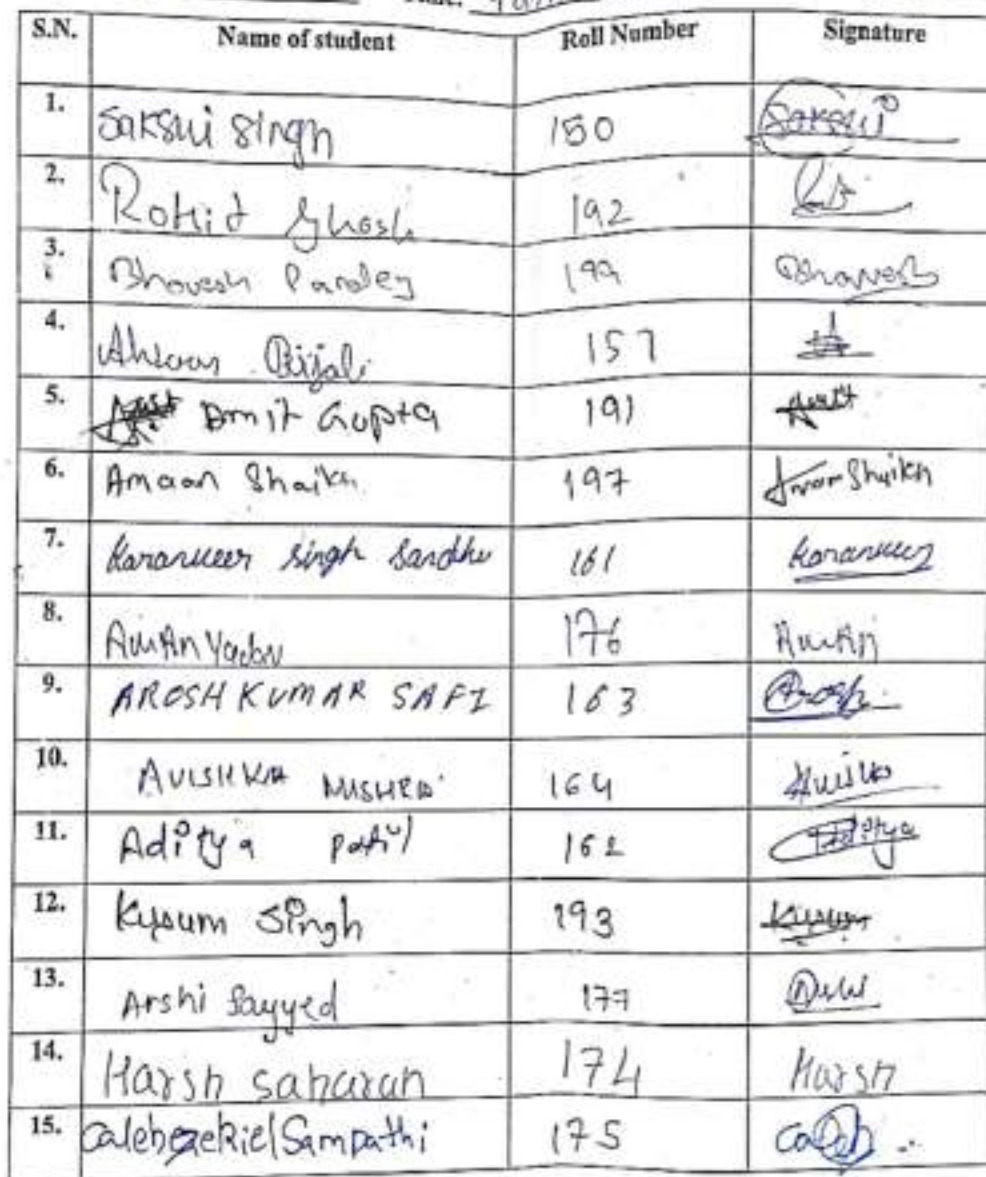 S.N. Name of student Roll Number Signature
1. Sakshi Singh 150 Sakshi
2. Rohit Ghosh 192
3. Bhavesh Pandey 199 Bhavesh
4. Ahsaan Bijali 157
5. Amit Gupta 191 Amit
6. Amaan Shaikh 197 Amaan Shaikh
7. Karanveer Singh Sandhu 161 Karanveer
8. Aman Yadav 176 Aman
9. AROSH KUMAR SAFI 163 Arosh
10. AVISHKA MISHRA 164 Avishka
11. Aditya patil 162 Aditya
12. Kusum Singh 193 Kusum
13. Arshi Sayyed 177
14. Harsh saharan 174 Harsh
15. Calebezekiel Sampathi 175 Caleb